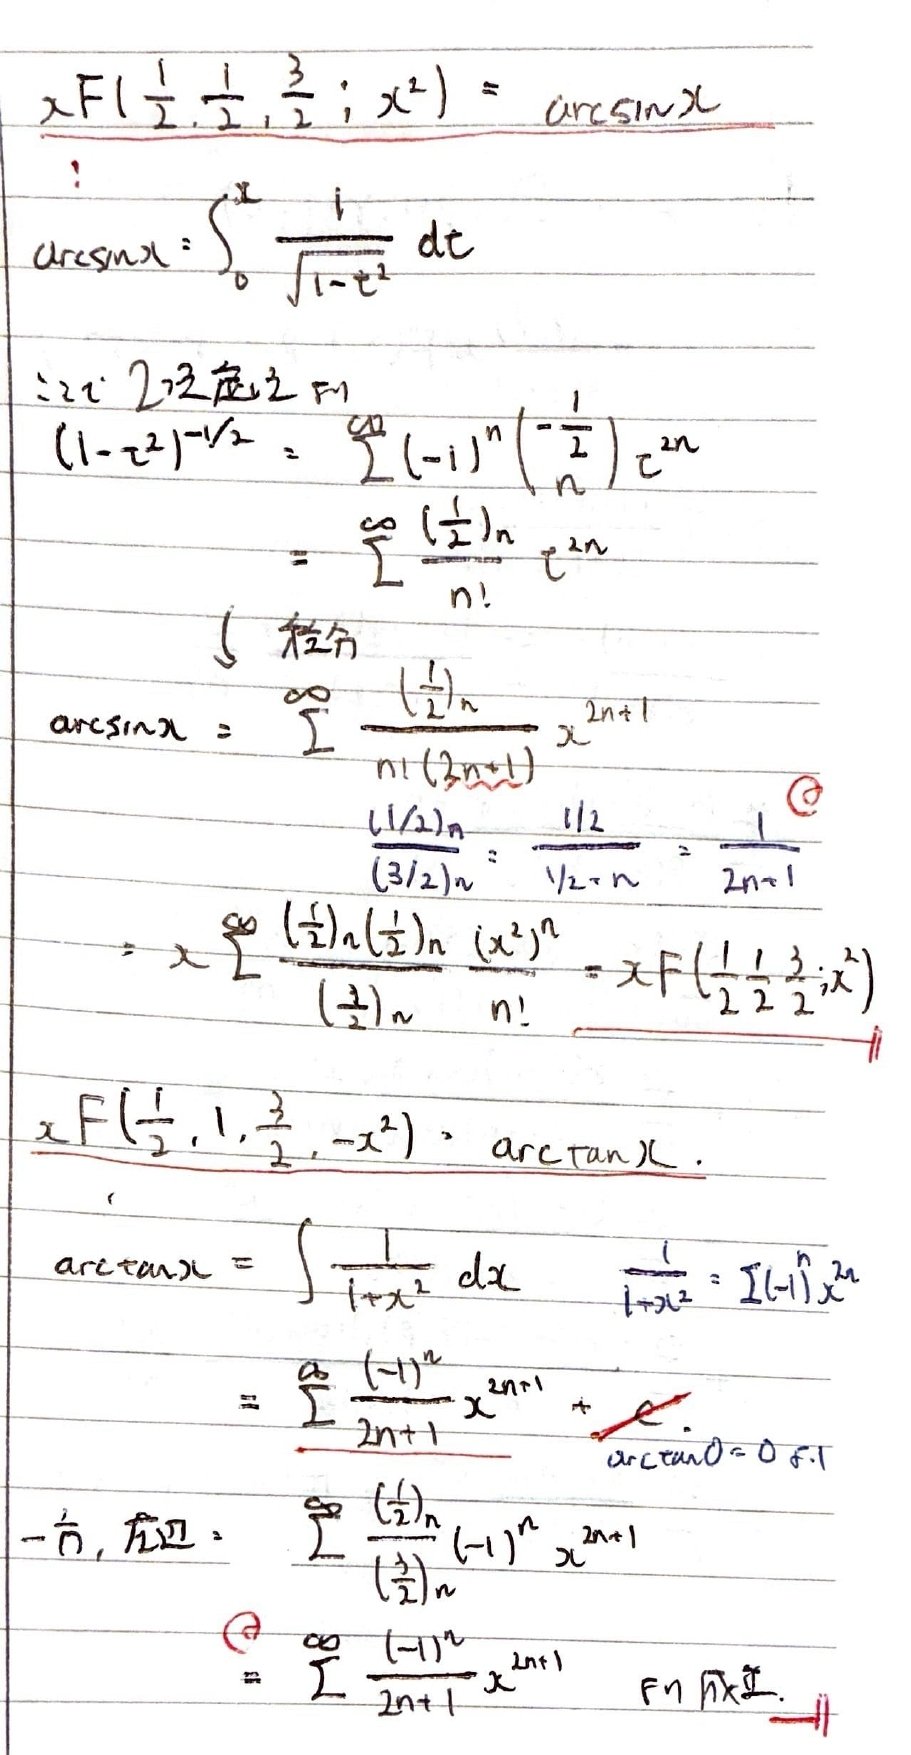 xF(1/2, 1/2, 3/2 ; x²) = arcsin x
arcsin x = ∫₀ˣ 1/√(1-t²) dt
ここで 2項定理より
(1-t²)^(-1/2) = Σ^∞ (-1)ⁿ (-1/2 n) t²ⁿ
= Σ^∞ (1/2)ₙ/n! t²ⁿ
↓ 積分
arcsin x = Σ^∞ (1/2)ₙ/(n!(2n+1)) x²ⁿ⁺¹
@
(1/2)ₙ/(3/2)ₙ = (1/2)/(1/2+n) = 1/(2n+1)
= x Σ^∞ (1/2)ₙ(1/2)ₙ/(3/2)ₙ (x²)ⁿ/n! = xF(1/2 1/2 3/2 ; x²)
xF(1/2, 1, 3/2, -x²) = arctan x.
arctan x = ∫ 1/(1+x²) dx 1/(1+x²) = Σ(-1)ⁿ x²ⁿ
= Σ^∞ (-1)ⁿ/(2n+1) x²ⁿ⁺¹ + c.
arctan 0 = 0 より
一方, 左辺 = Σ^∞ (1/2)ₙ/(3/2)ₙ (-1)ⁿ x²ⁿ⁺¹
@
= Σ^∞ (-1)ⁿ/(2n+1) x²ⁿ⁺¹ より 成立.